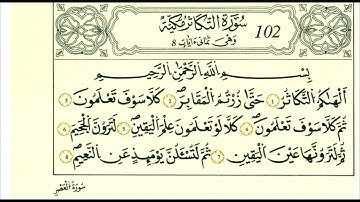 سُورَةُ التَّكَاثُرِ مَكِّيَّةٌ
102
وَهِيَ ثَمَانِي آيَاتٍ 8
بِسْمِ اللَّهِ الرَّحْمَٰنِ الرَّحِيمِ
أَلْهَاكُمُ التَّكَاثُرُ ١ حَتَّىٰ زُرْتُمُ الْمَقَابِرَ ٢ كَلَّا سَوْفَ تَعْلَمُونَ ٣
ثُمَّ كَلَّا سَوْفَ تَعْلَمُونَ ٤ كَلَّا لَوْ تَعْلَمُونَ عِلْمَ الْيَقِينِ ٥ لَتَرَوُنَّ الْجَحِيمَ ٦
ثُمَّ لَتَرَوُنَّهَا عَيْنَ الْيَقِينِ ٧ ثُمَّ لَتُسْأَلُنَّ يَوْمَئِذٍ عَنِ النَّعِيمِ ٨
سُورَةُ الْعَصْرِ